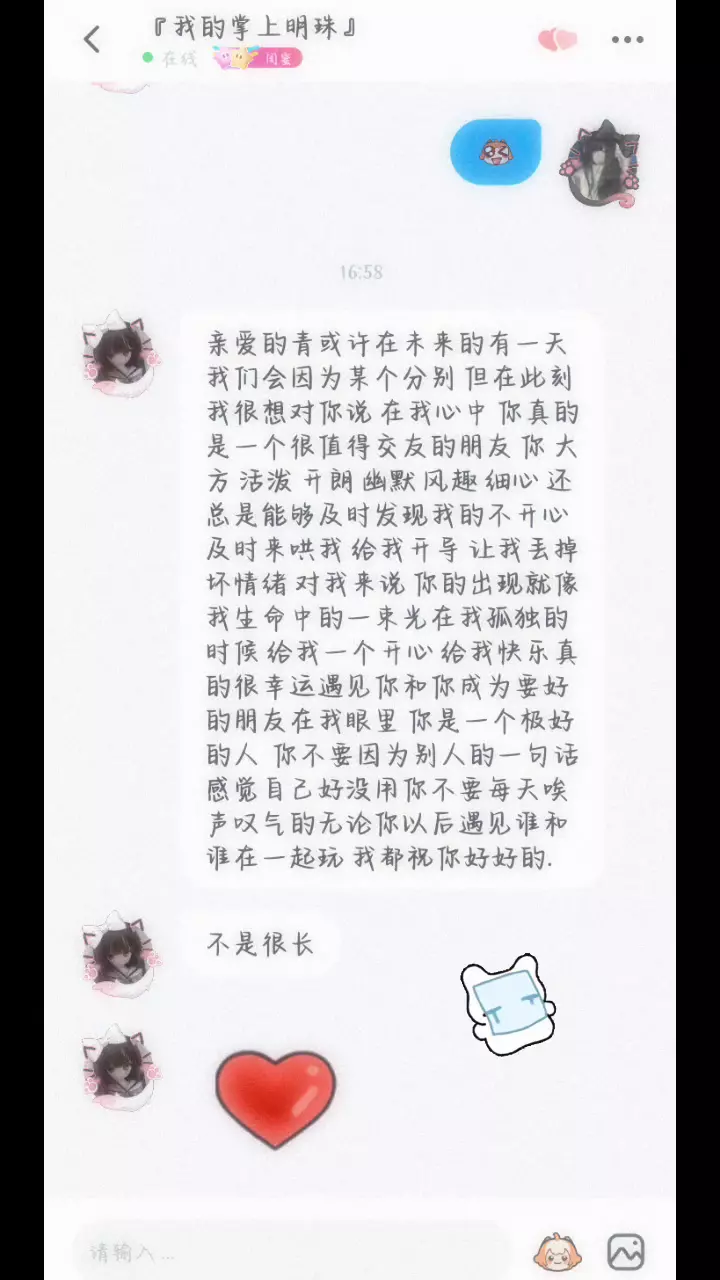 『我的掌上明珠』
在线
闺蜜
16:58
亲爱的青或许在未来的有一天
我们会因为某个分别 但在此刻
我很想对你说 在我心中 你真的
是一个很值得交友的朋友 你 大
方 活泼 开朗 幽默 风趣 细心 还
总是能够及时发现我的不开心
及时来哄我 给我开导 让我丢掉
坏情绪 对我来说 你的出现就像
我生命中的一束光在我孤独的
时候 给我一个开心 给我快乐真
的很幸运遇见你和你成为要好
的朋友在我眼里 你是一个极好
的人 你不要因为别人的一句话
感觉自己好没用你不要每天唉
声叹气的无论你以后遇见谁和
谁在一起玩 我都祝你好好的.
不是很长
请输入 ...